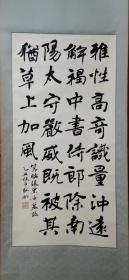 雅性高奇識量沖遠
解褐中書侍郎除南
陽太守嚴威既被其
猶草上加風
臨張黑女墓誌